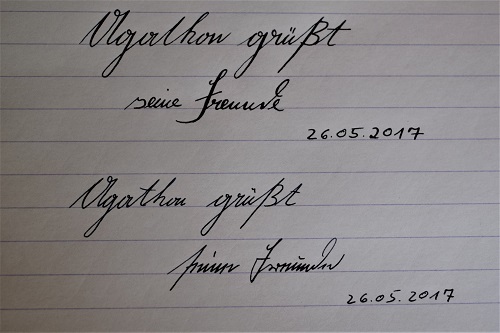 Agathon grüßt
seine Freunde
26.05.2017
Agathon grüßt
seine Freunde
26.05.2017